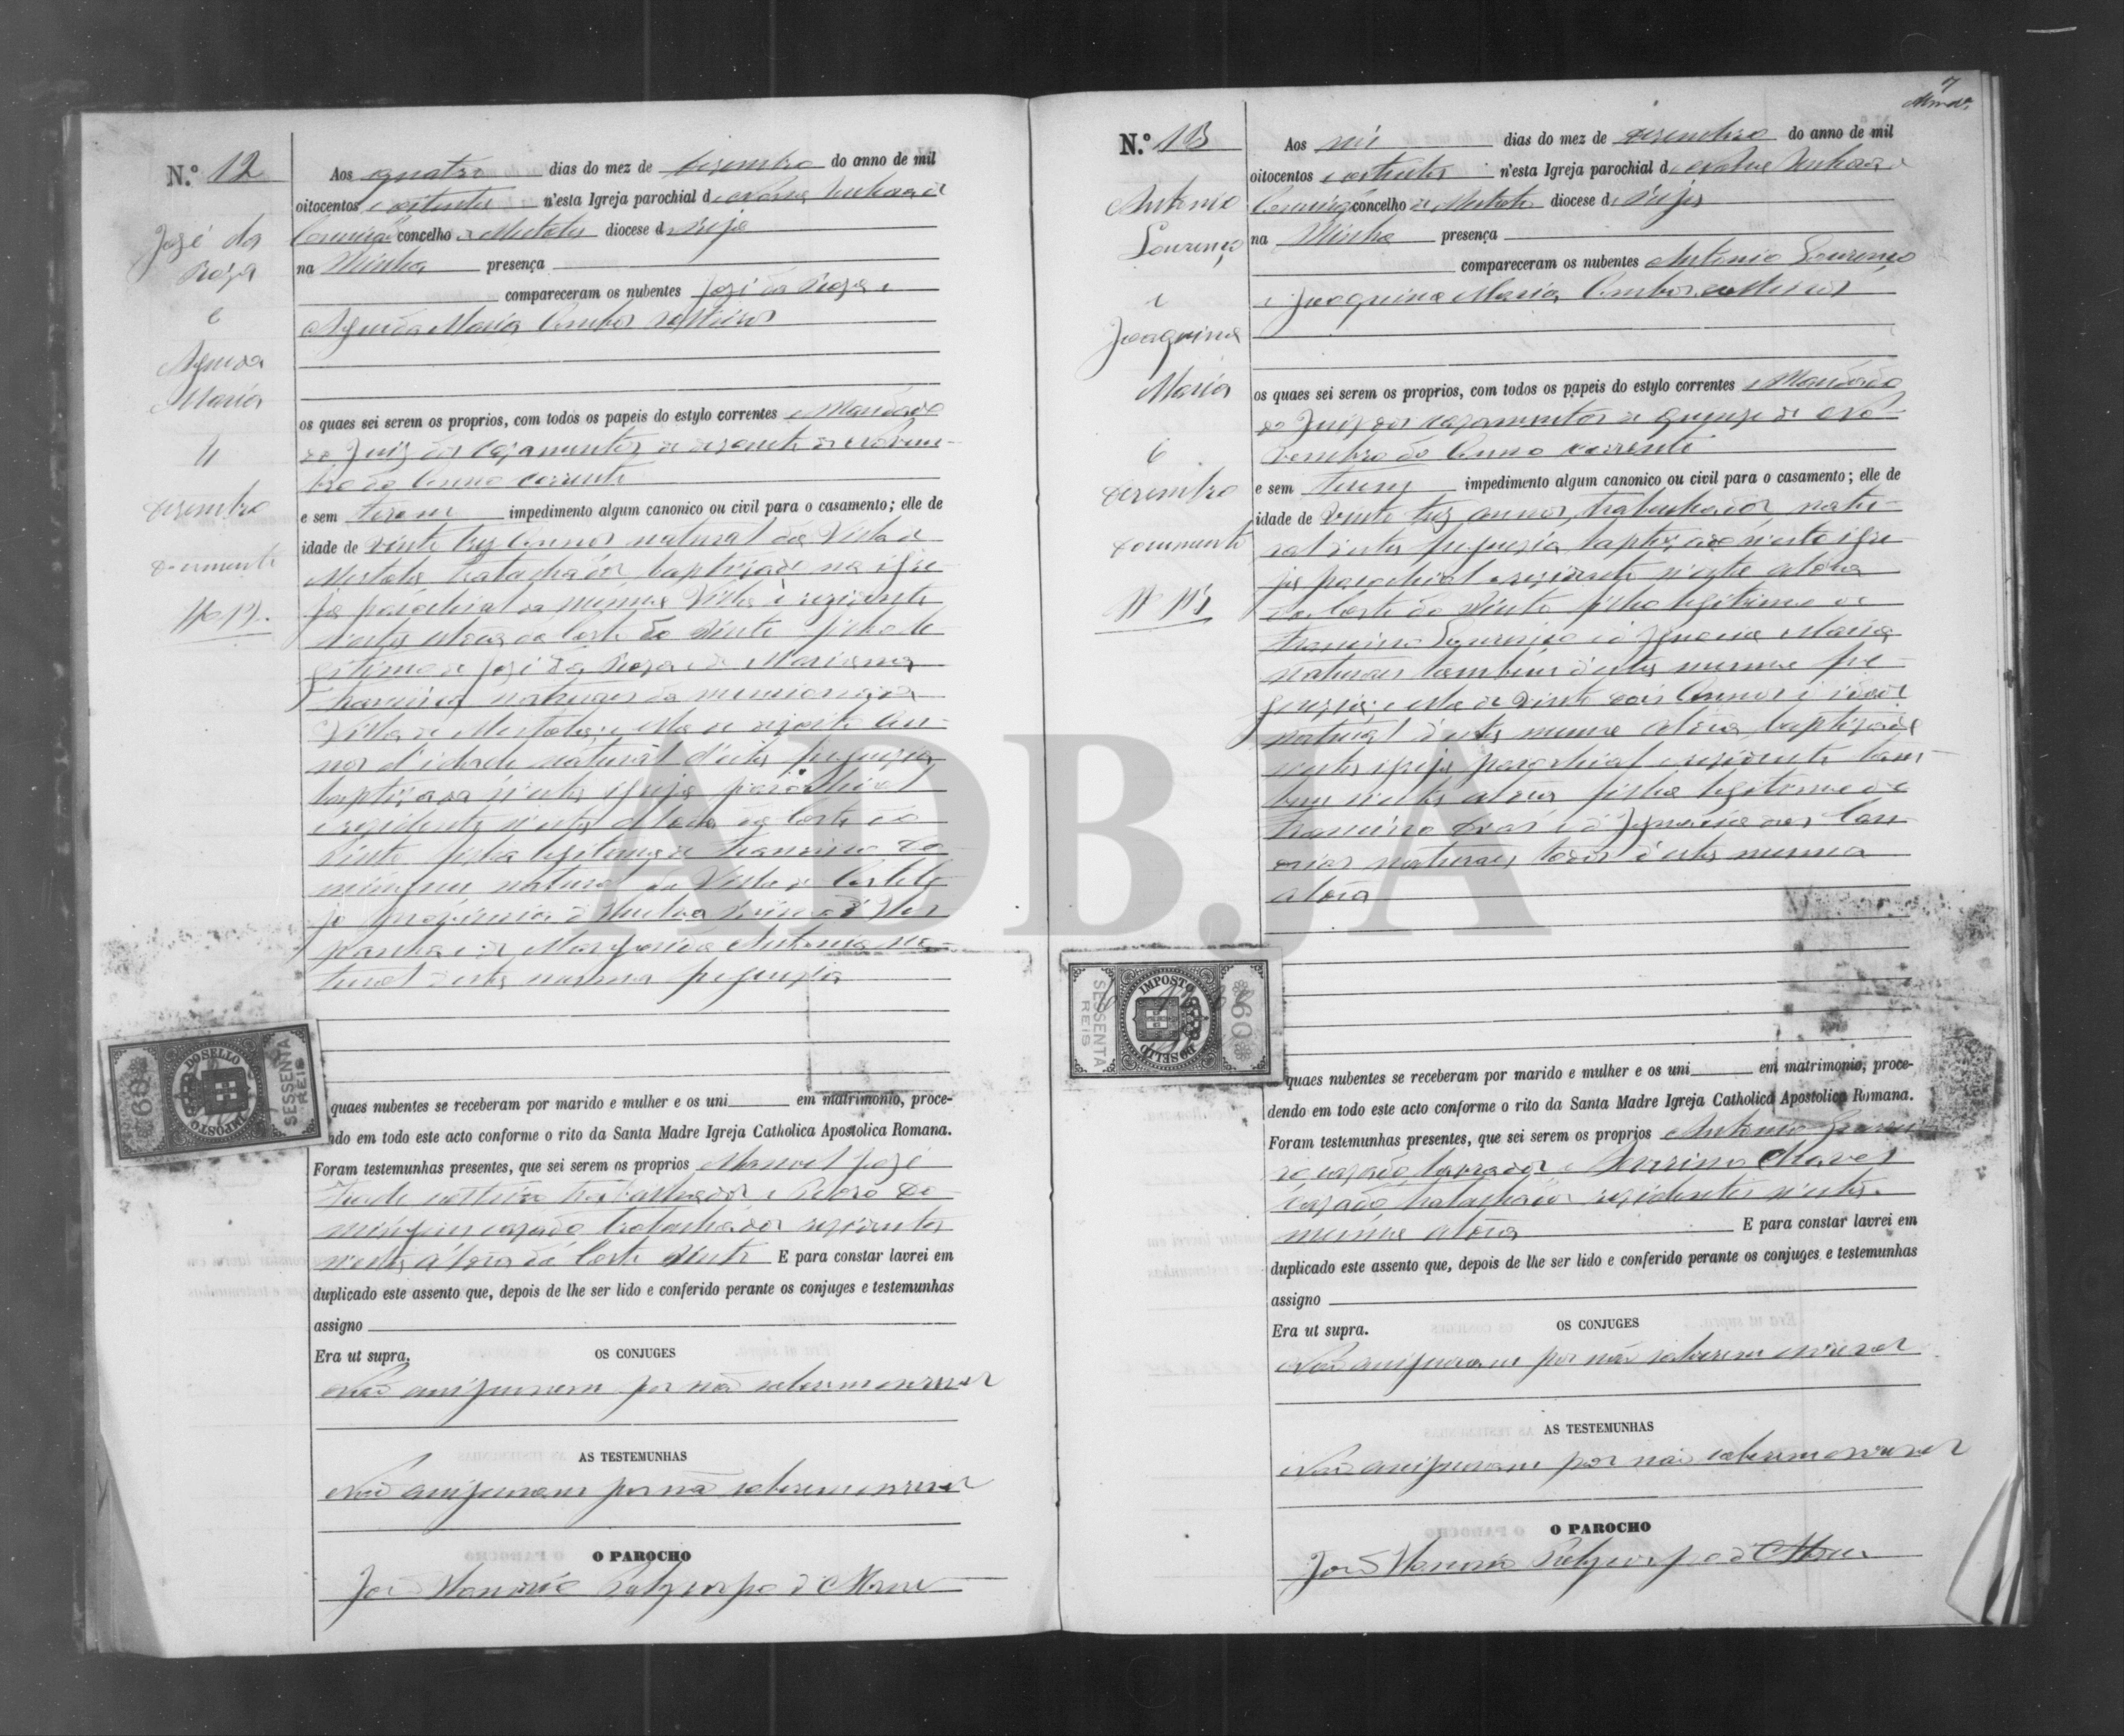 N.º 12
José da
Roza
e
Agueda
Maria
4
dezembro
documento
Nº 12.
Aos quatro dias do mez de dezembro do anno de mil
oitocentos e oitenta n'esta Igreja parochial de Nossa Senhora da
Conceição concelho de Mertola diocese de Beja
na Minha presença
compareceram os nubentes José da Roza e
Agueda Maria Ambos solteiros
os quaes sei serem os proprios, com todos os papeis do estylo correntes e Mandado
do Juiz dos cazamentos de de Novem-
bro do Anno corrente
e sem terem impedimento algum canonico ou civil para o casamento; elle de
idade de vinte trez Annos natural da Villa de
Mertola trabalhador baptizado na igre-
ja parochial da mesma Villa e rezidente
n'esta aldeia da Corte do Pinto filho le-
gitimo de José da Roza e de Marianna
naturaes da mencionada
Villa de Mertola; e ella de dezoito An-
nos d'idade natural d'esta freguezia
baptizada n'esta igreja parochial
e rezidente n'esta aldeia da Corte do
Pinto filha legitima de Francisco Do-
mingues natural da Villa de Castele-
jo provincia d'Huelva Reino d'Hes
panha e de Margarida Antonia na-
tural d'esta mesma freguezia
quaes nubentes se receberam por marido e mulher e os uni em matrimonio, proce-
ndo em todo este acto conforme o rito da Santa Madre Igreja Catholica Apostolica Romana.
Foram testemunhas presentes, que sei serem os proprios Manoel José
solteiro trabalhador e Pedro Do-
mingues cazado trabalhador rezidentes
n'esta aldeia da Corte Pinto E para constar lavrei em
duplicado este assento que, depois de lhe ser lido e conferido perante os conjuges e testemunhas
assigno
Era ut supra. OS CONJUGES
Não assignaram por não saberem escrever
AS TESTEMUNHAS
Não assignaram por não saberem escrever
O PAROCHO
IMPOSTO DO SELLO
60
SESSENTA REIS
7
N.º 13
Antonio
Lourenço
e
Joaquina
Maria
6
dezembro
documento
Nº 13
Aos seis dias do mez de dezembro do anno de mil
oitocentos e oitenta n'esta Igreja parochial de Nossa Senhora da
Conceição concelho de Mertola diocese de Beja
na Minha presença
compareceram os nubentes Antonio Lourenço
e Joaquina Maria Ambos solteiros
os quaes sei serem os proprios, com todos os papeis do estylo correntes e Mandado
do Juiz dos cazamentos de quinze de No-
vembro do Anno corrente
e sem terem impedimento algum canonico ou civil para o casamento; elle de
idade de vinte trez annos, trabalhador, natu-
ral d'esta freguezia baptizado n'esta igre-
ja parochial e rezidente n'esta aldeia
da Corte do Pinto filho legitimo de
Francisco Lourenço e d' Maria
naturaes tambem d'esta mesma fre-
guezia; e ella de vinte dois Annos d'idade
natural d'esta mesma aldeia baptizada
n'esta igreja parochial e rezidente tam-
bem n'esta aldeia filha legitima de
Francisco e d'
naturaes todos d'esta mesma
aldeia
quaes nubentes se receberam por marido e mulher e os uni em matrimonio, proce-
dendo em todo este acto conforme o rito da Santa Madre Igreja Catholica Apostolica Romana.
Foram testemunhas presentes, que sei serem os proprios Antonio
cazado lavrador e Severino Chaves
cazado trabalhador rezidentes n'esta
mesma aldeia E para constar lavrei em
duplicado este assento que, depois de lhe ser lido e conferido perante os conjuges e testemunhas
assigno
Era ut supra. OS CONJUGES
Não assignaram por não saberem escrever
AS TESTEMUNHAS
Não assignaram por não saberem escrever
O PAROCHO
IMPOSTO DO SELLO
60
SESSENTA REIS
ADBJA